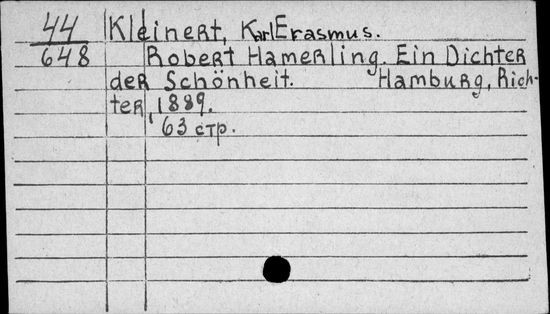 44 Kleinert, Karl Erasmus.
648 Robert Hamerling. Ein Dichter
der Schönheit. Hamburg, Rich-
ter, 1889.
63 стр.